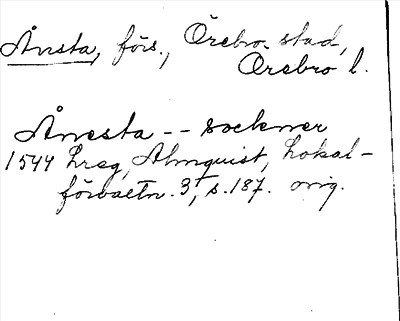 Ånsta, förs., Örebro stad,
Örebro l.
Ånesta -- sockner
1544 hreg, Almquist, Lokal-
förvaltn. 3, s. 187. orig.